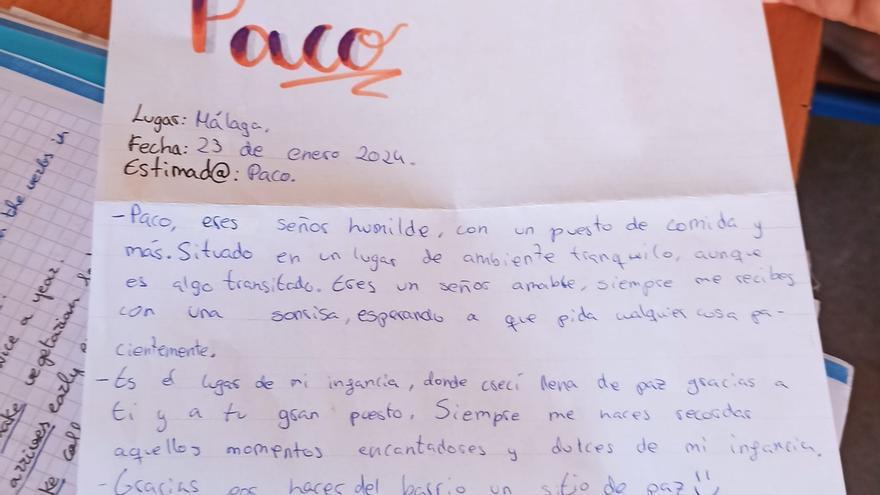 Paco
Lugar: Málaga.
Fecha: 23 de enero 2024.
Estimad@: Paco.
- Paco, eres señor humilde, con un puesto de comida y
más. Situado en un lugar de ambiente tranquilo, aunque
es algo transitado. Eres un señor amable, siempre me recibes
con una sonrisa, esperando a que pida cualquier cosa pa-
cientemente.
- Es el lugar de mi infancia, donde crecí llena de paz gracias a
ti y a tu gran puesto. Siempre me haces recordar
aquellos momentos encantadores y dulces de mi infancia.
- Gracias por hacer del barrio un sitio de paz!!
n the verbs in
wice a year.
make vegetarian
arrives early
call